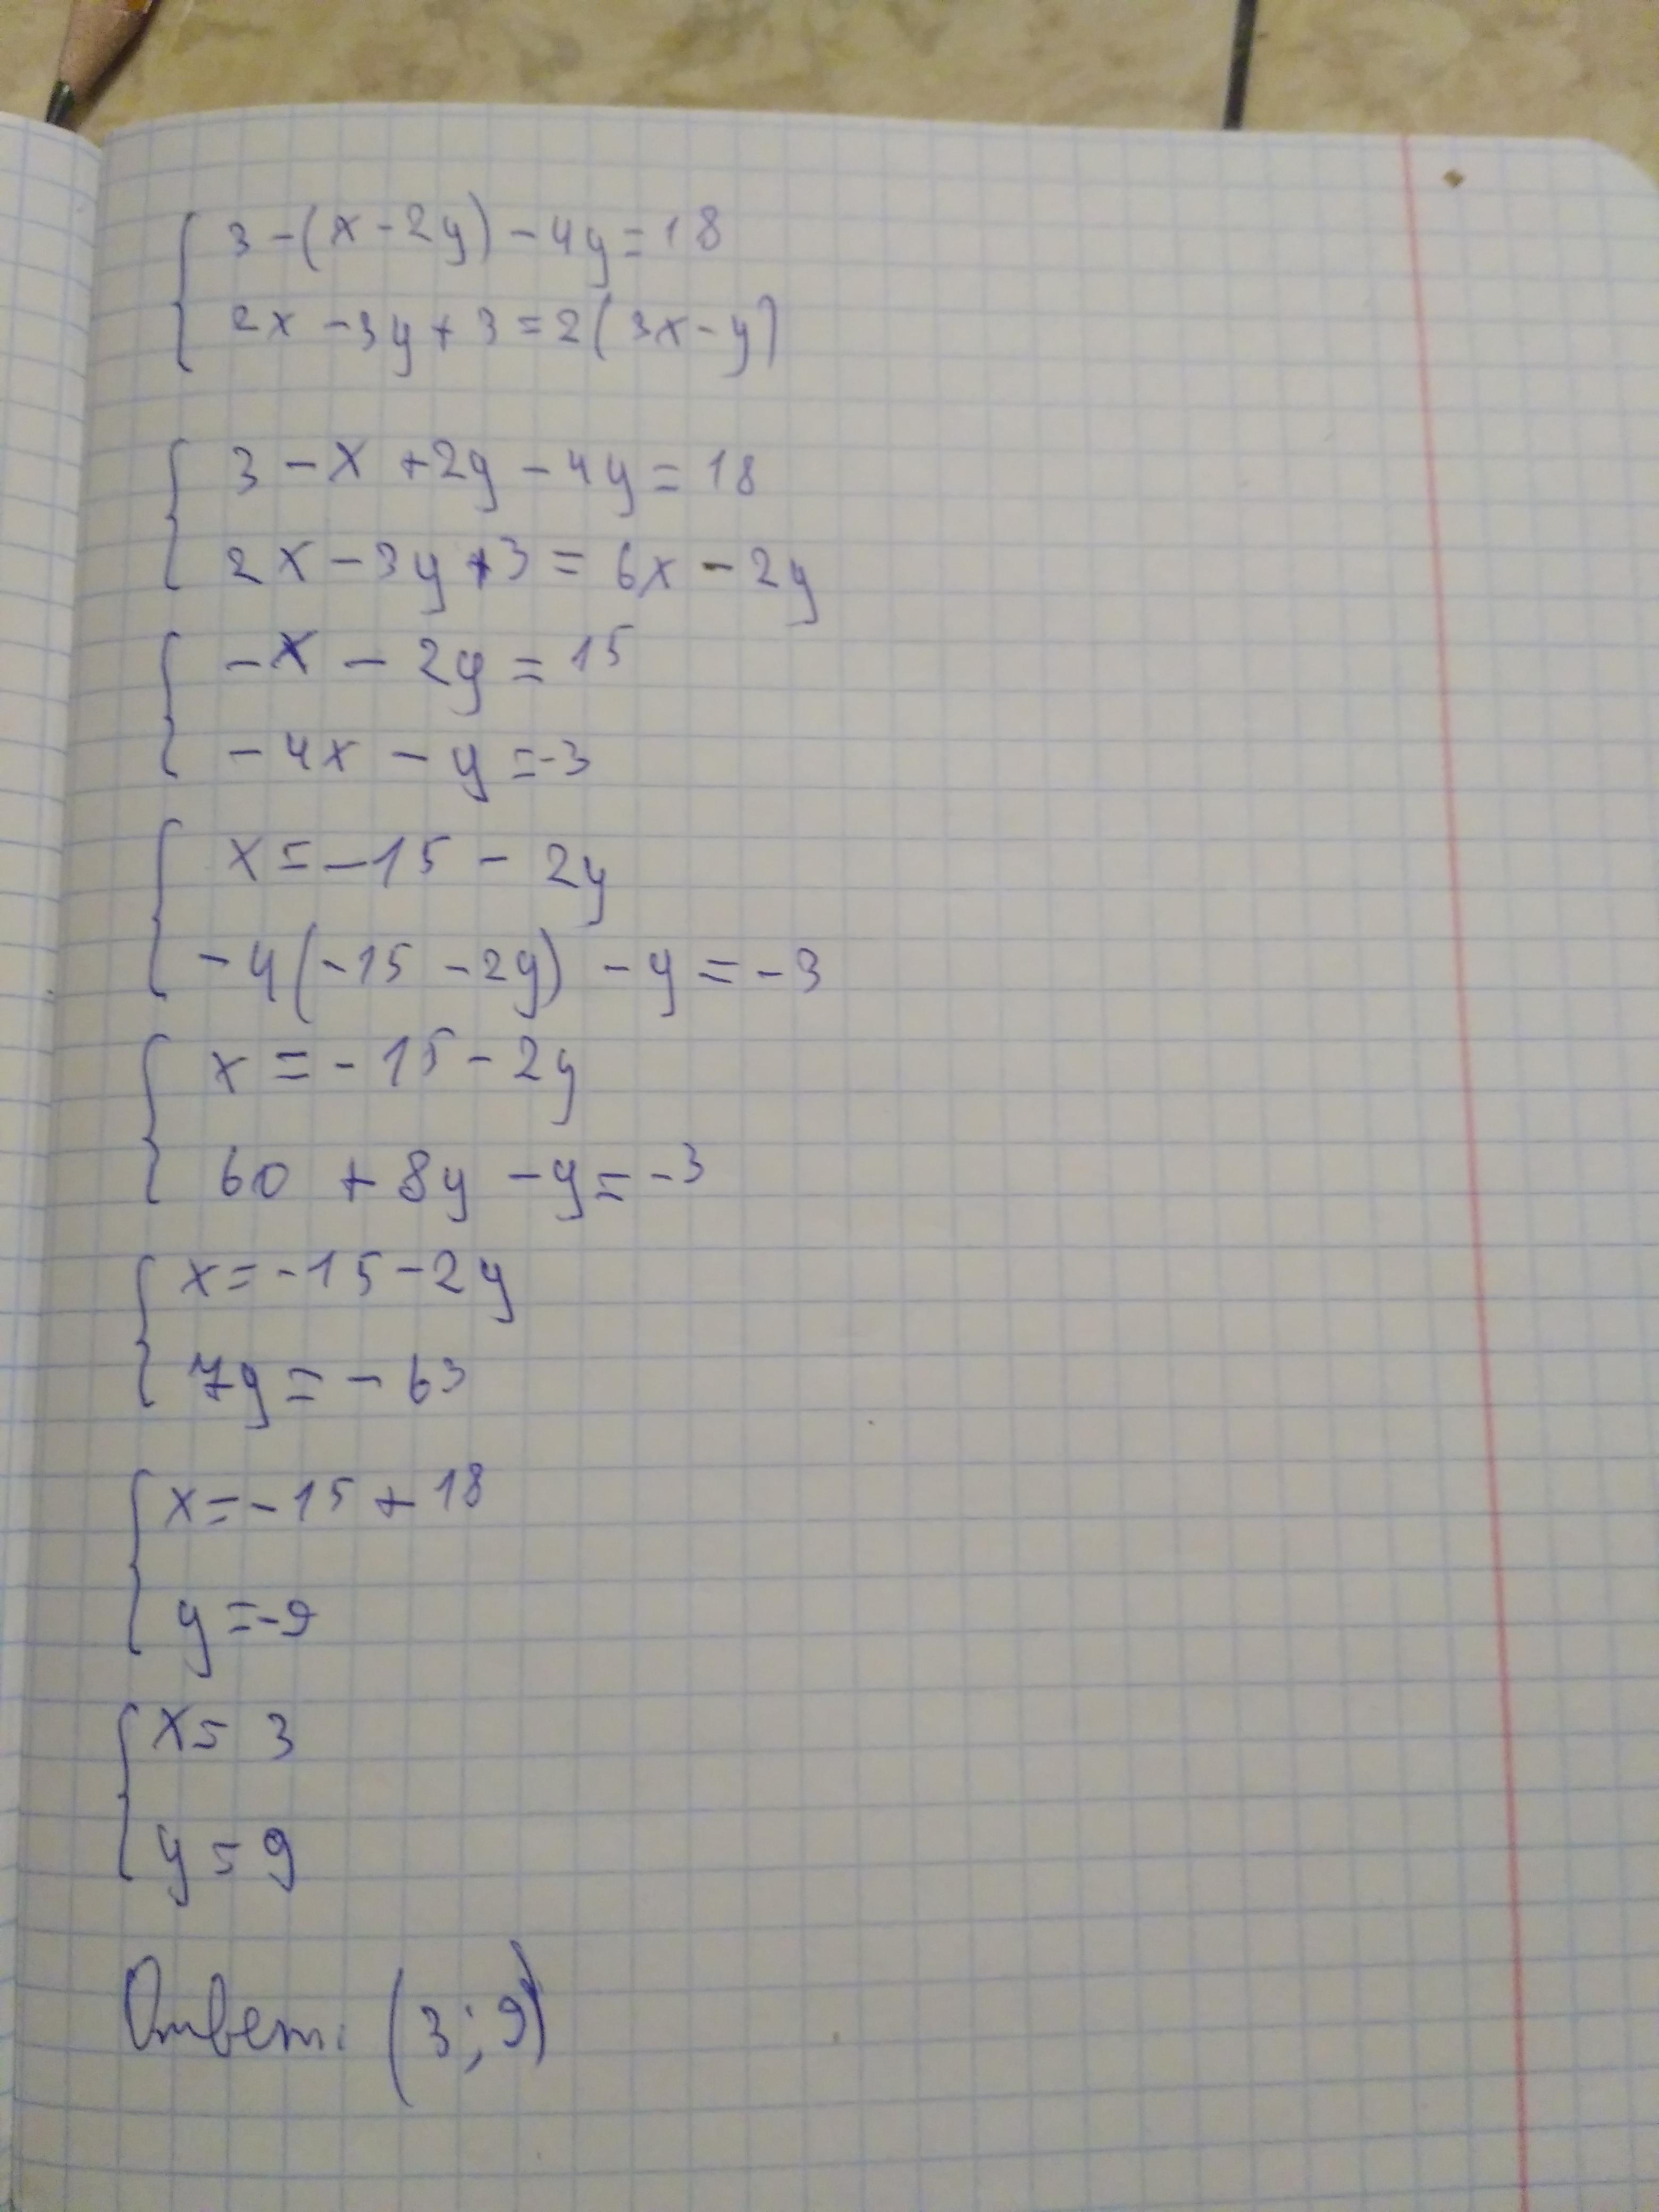 3-(x-2y)-4y=18
2x-3y+3=2(3x-y)
3-x+2y-4y=18
2x-3y+3=6x-2y
-x-2y=15
-4x-y=-3
x=-15-2y
-4(-15-2y)-y=-3
x=-15-2y
60+8y-y=-3
x=-15-2y
7y=-63
x=-15+18
y=-9
x=3
y=9
Ответ: (3;9)